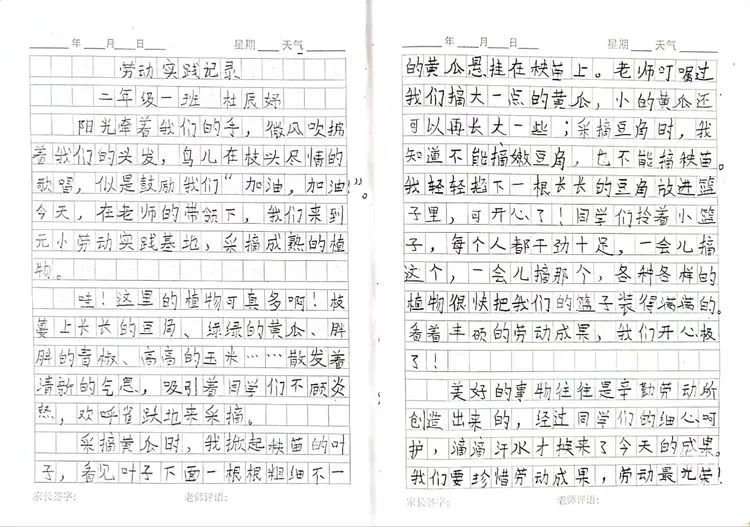 ____年____月____日____ 星期____天气____
劳动实践记录
二年级一班 杜辰妤
阳光牵着我们的手，微风吹拂
着我们的头发，鸟儿在枝头尽情的
歌唱，似是鼓励我们“加油，加油！”。
今天，在老师的带领下，我们来到
元小劳动实践基地，采摘成熟的植
物。
哇！这里的植物可真多啊！枝
蔓上长长的豆角、绿绿的黄瓜、胖
胖的青椒、高高的玉米……散发着
清新的气息，吸引着同学们不顾炎
热，欢呼雀跃地来采摘。
采摘黄瓜时，我掀起秧苗的叶
子，看见叶子下面一根根粗细不一
家长签字： 老师评语：
____年____月____日____ 星期____天气____
的黄瓜悬挂在秧苗上。老师叮嘱过
我们摘大一点的黄瓜，小的黄瓜还
可以再长大一些；采摘豆角时，我
知道不能摘嫩豆角，也不能摘秧苗。
我轻轻掐下一根长长的豆角放进篮
子里，可开心了！同学们拎着小篮
子，每个人都干劲十足，一会儿摘
这个，一会儿摘那个，各种各样的
植物很快把我们的篮子装得满满的。
看着丰硕的劳动成果，我们开心极
了！
美好的事物往往是辛勤劳动所
创造出来的，经过同学们的细心呵
护，滴滴汗水才换来了今天的成果。
我们要珍惜劳动成果，劳动最光荣！
家长签字： 老师评语：